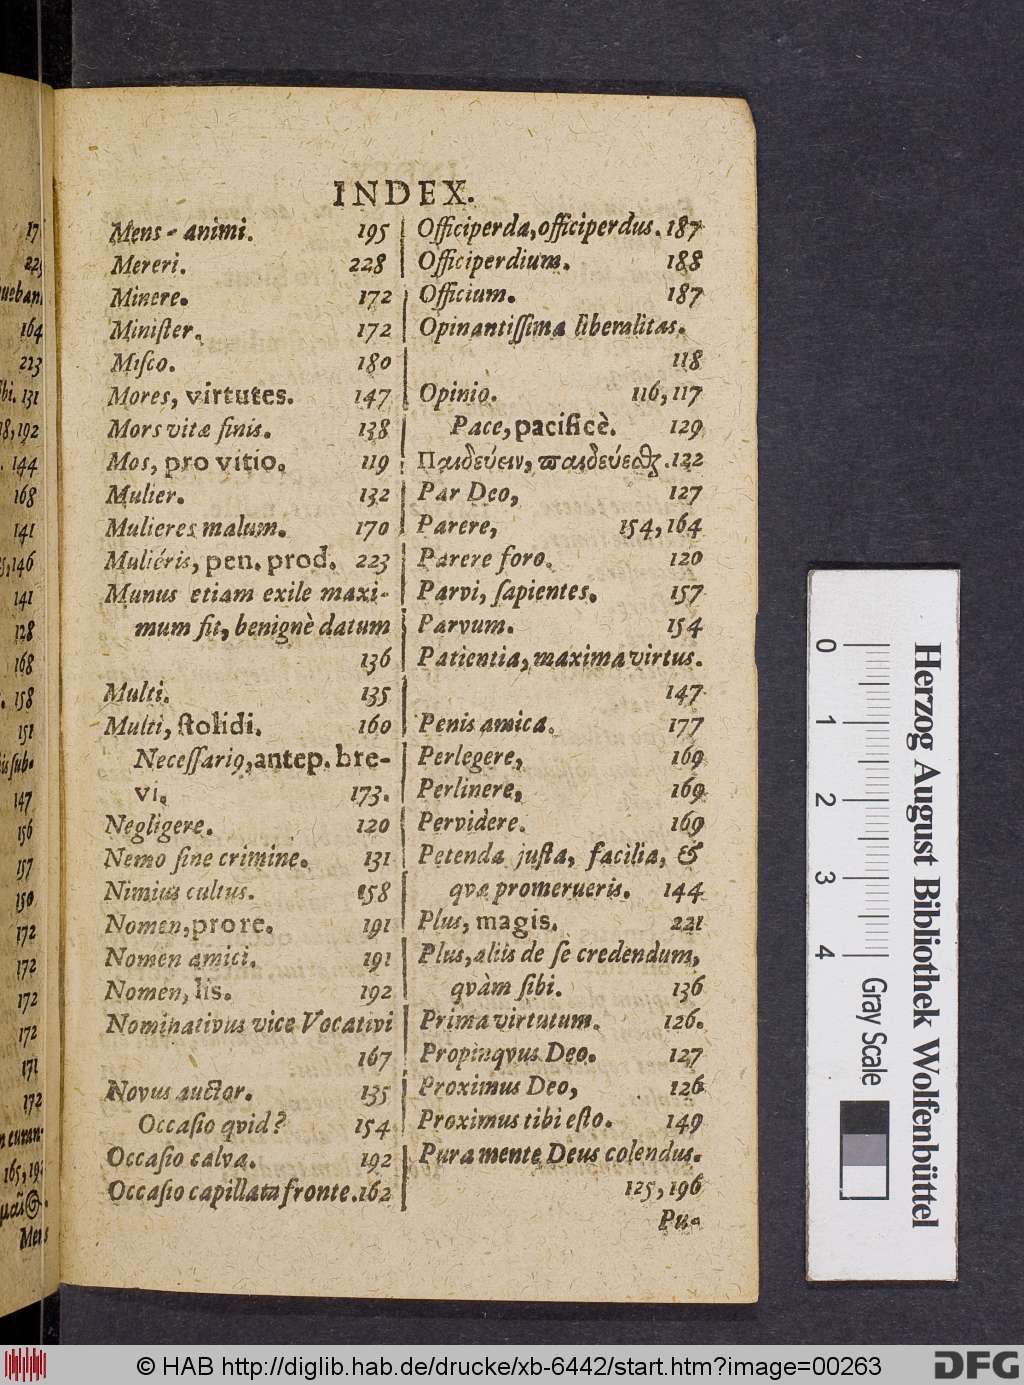 INDEX.
Mens-animi. 195
Mereri. 228
Minere. 172
Miniſter. 172
Miſco. 180
Mores, virtutes. 147
Mors vitæ finis. 138
Mos, pro vitio. 119
Mulier. 132
Mulieres malum. 170
Muliéris, pen. prod. 223
Munus etiam exile maxi-
mum fit, benignè datum
136
Multi. 135
Multi, ſtolidi. 160
Neceſſariꝰ, antep. bre-
vi. 173.
Negligere. 120
Nemo ſine crimine. 131
Nimius cultus. 158
Nomen, pro re. 191
Nomen amici. 191
Nomen, lis. 192
Nominativus vice Vocativi
167
Novus auctor. 135
Occaſio qvid? 154
Occaſio calva. 192
Occaſio capillata fronte. 162
Officiperda, officiperdus. 187
Officiperdium. 188
Officium. 187
Opinantiſſima liberalitas.
118
Opinio. 116, 117
Pace, pacificè. 129
Παιδεύειν, παιδεύεϑς. 122
Par Deo, 127
Parere, 154, 164
Parere foro. 120
Parvi, ſapientes. 157
Parvum. 154
Patientia, maxima virtus.
147
Penis amica. 177
Perlegere, 169
Perlinere, 169
Pervidere. 169
Petenda juſta, facilia, &
qvæ promerueris. 144
Plus, magis. 221
Plus, aliis de ſe credendum,
qvàm ſibi. 136
Prima virtutum. 126.
Propinqvus Deo. 127
Proximus Deo, 126
Proximus tibi eſto. 149
Pura mente Deus colendus.
125, 196
Pu-
0 1 2 3 4
Gray Scale
Herzog August Bibliothek Wolfenbüttel
© HAB http://diglib.hab.de/drucke/xb-6442/start.htm?image=00263
DFG